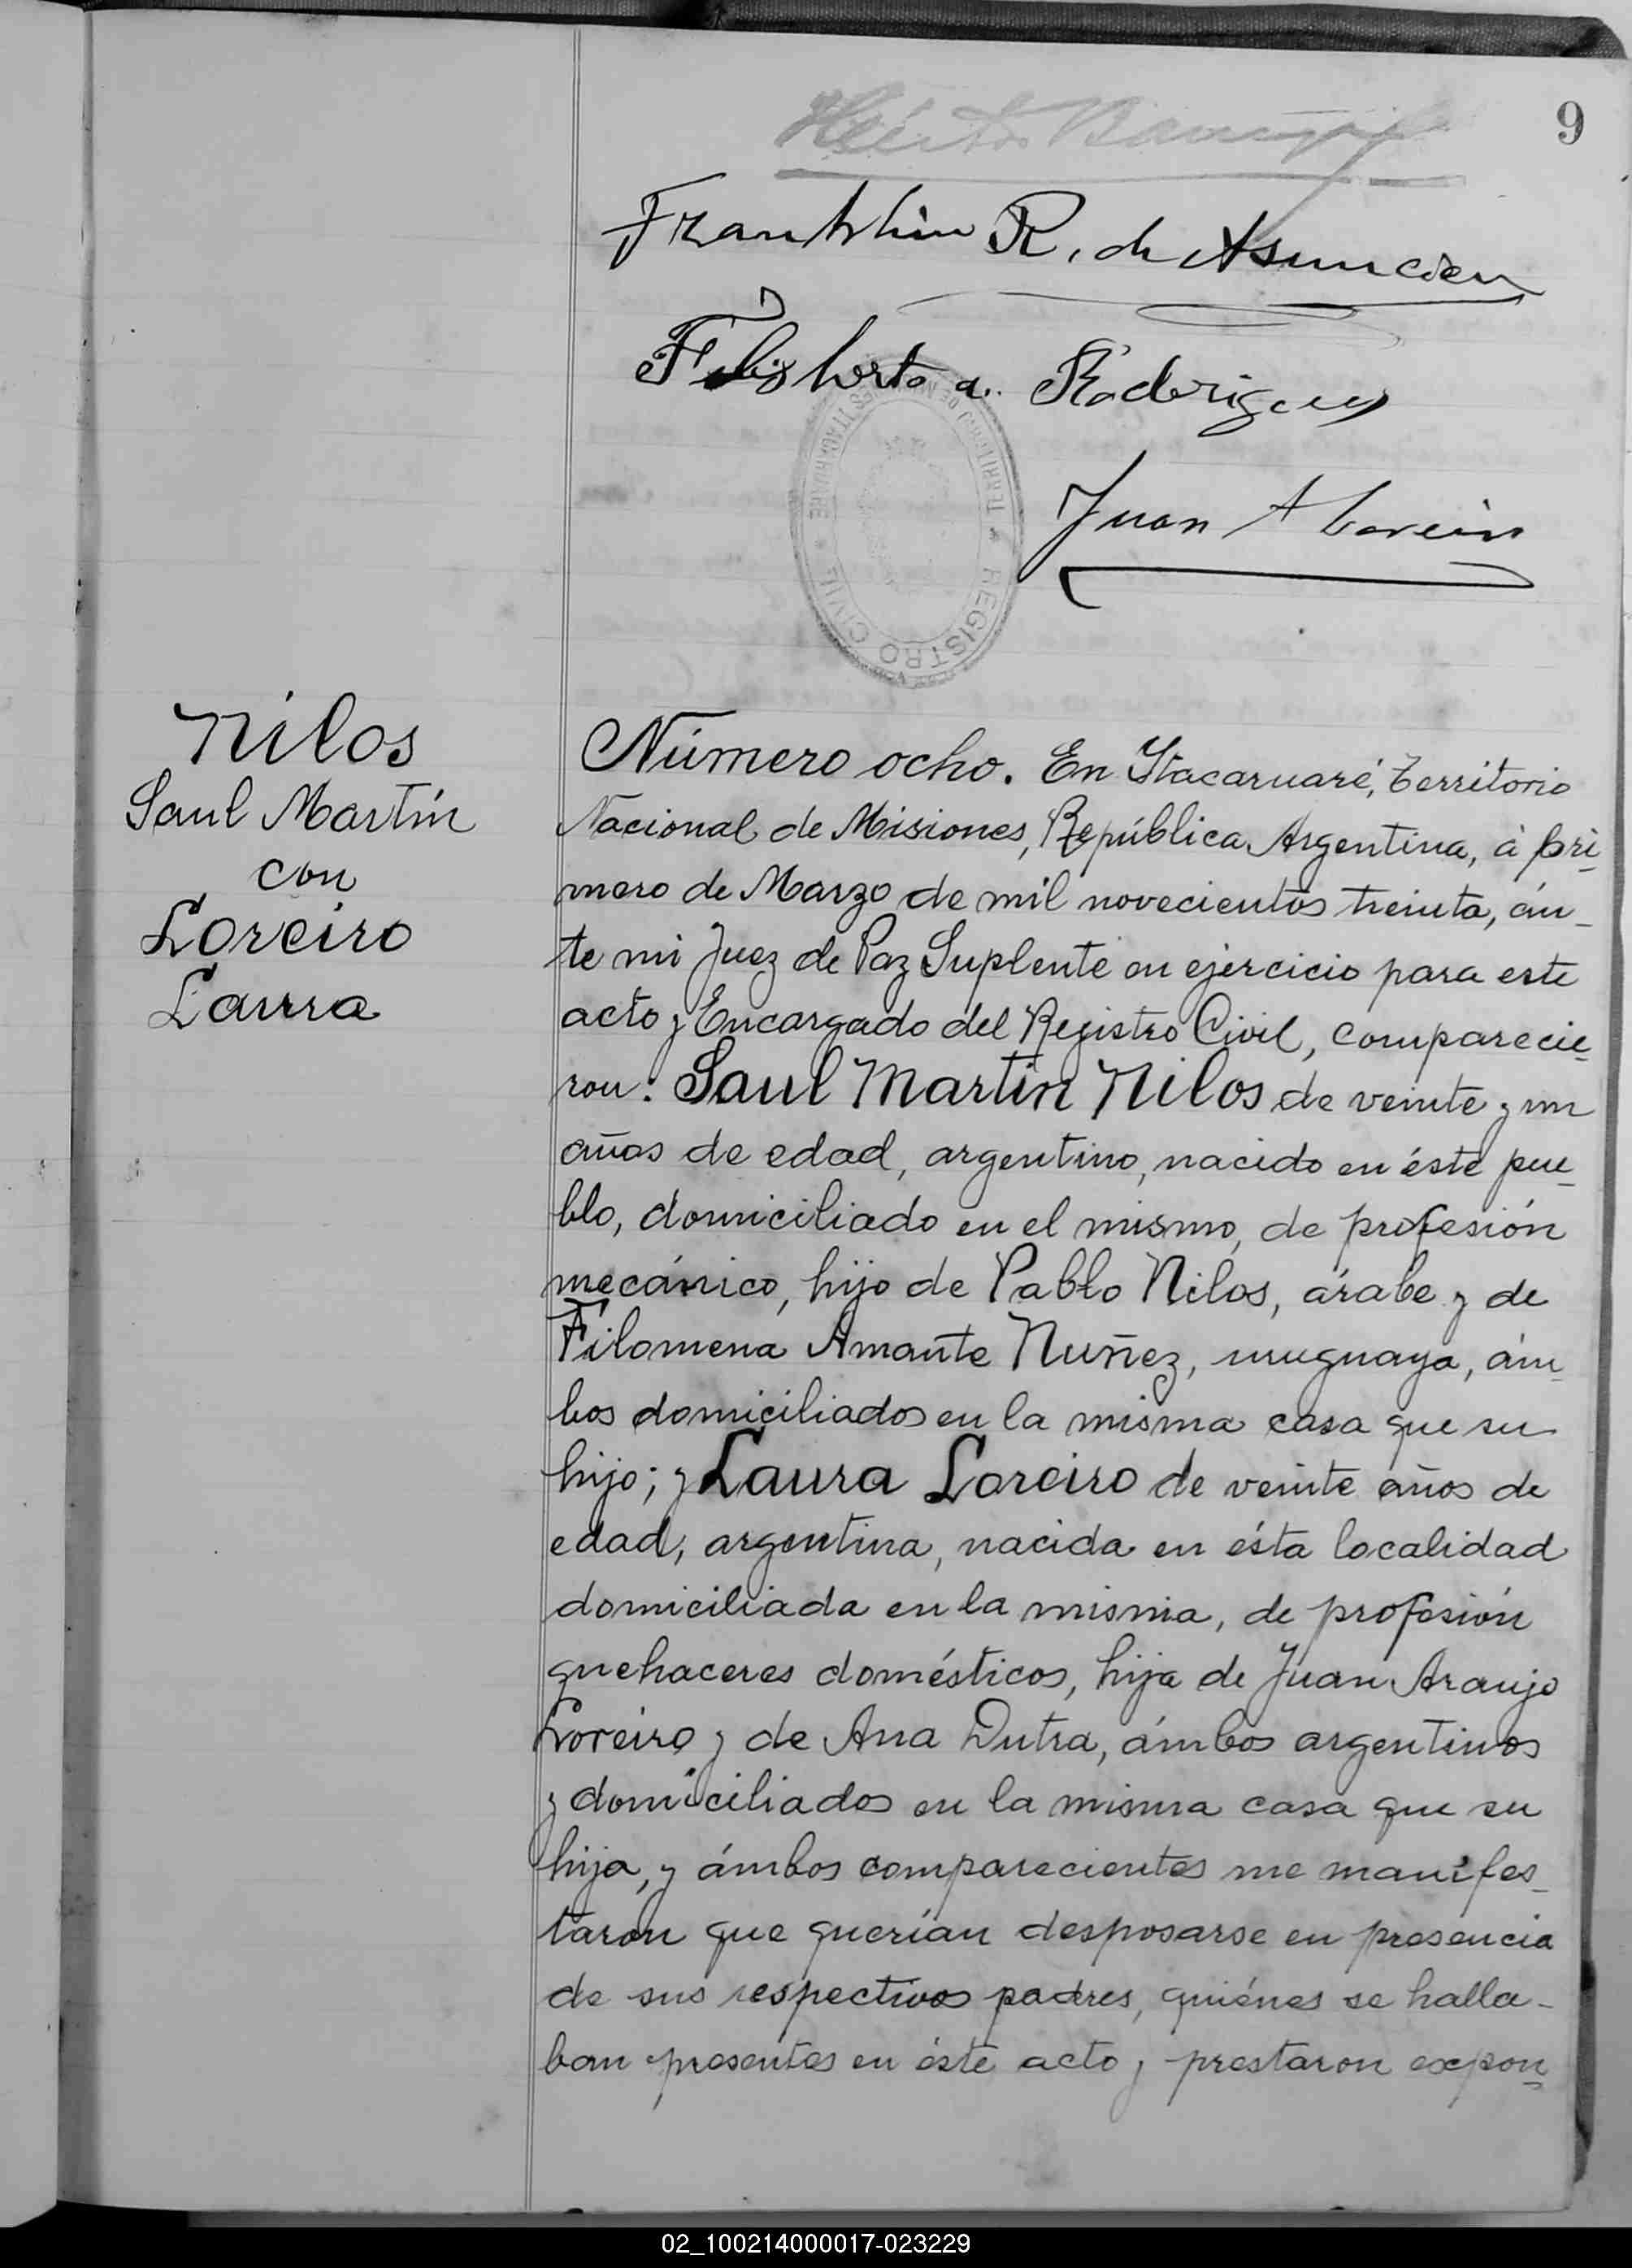 9
Franklin R. de Asuncion
Felisberta a. Rodrigues
Juan A Loreiro
TERRITORIO DE MISIONES ITACARUARÉ * REGISTRO CIVIL *
Nilos
Saul Martín
con
Loreiro
Laura
Número ocho. En Itacaruaré, Territorio
Nacional de Misiones, República Argentina, à pri_
mero de Marzo de mil novecientos treinta, án_
te mi Juez de Paz Suplente en ejercicio para este
acto y Encargado del Registro Civil, comparecie_
ron: Saul Martín Nilos de veinte y un
años de edad, argentino, nacido en éste pue_
blo, domiciliado en el mismo, de profesión
mecánico, hijo de Pablo Nilos, árabe y de
Filomena Amante Nuñez, uruguaya, ám_
bos domiciliados en la misma casa que su
hijo; y Laura Loreiro de veinte años de
edad, argentina, nacida en ésta localidad
domiciliada en la misma, de profesión
quehaceres domésticos, hija de Juan Araujo
Loreiro y de Ana Dutra, ámbos argentinos
y domiciliados en la misma casa que su
hija, y ámbos comparecientes me manifes_
taron que querían desposarse en presencia
de sus respectivos padres, quiénes se halla_
ban presentes en éste acto y prestaron expon_
02_100214000017-023229